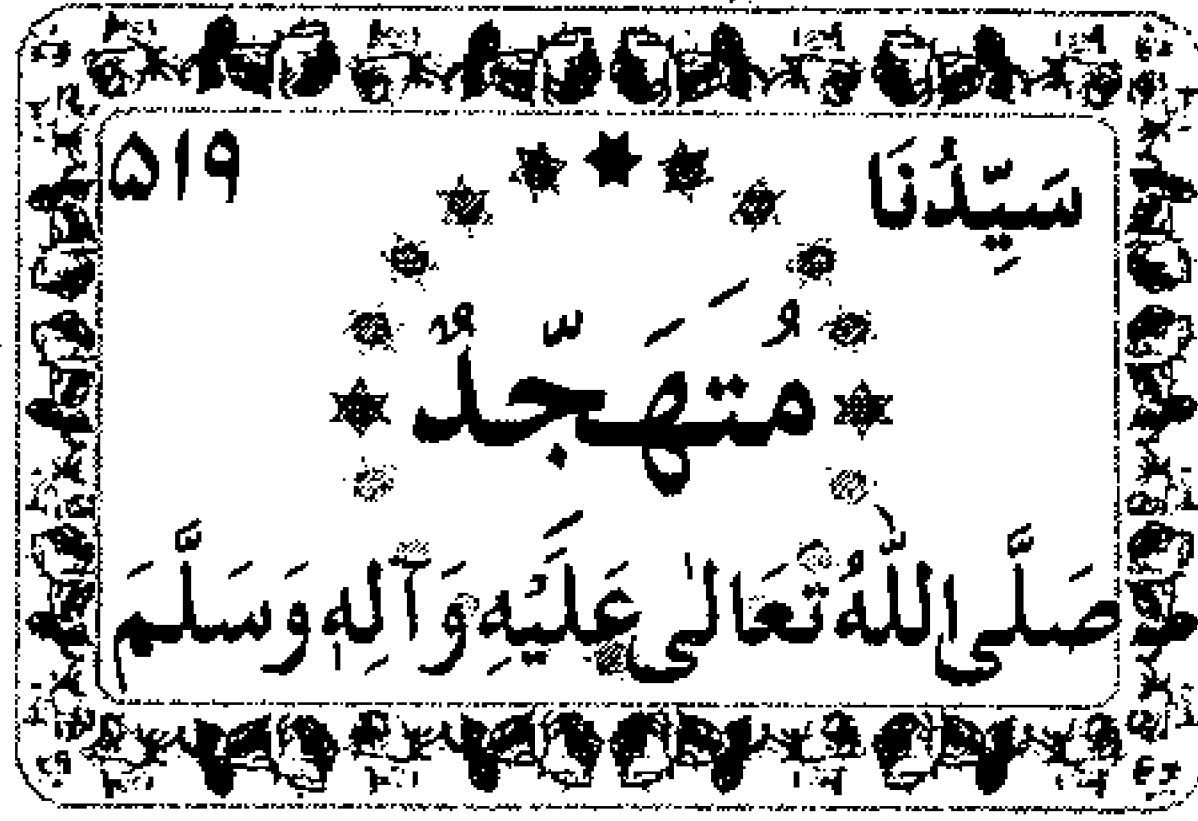 سَيِّدُنَا ۵۱۹
مُتَهَجِّدٌ
صَلَّى اللّٰهُ تَعَالٰى عَلَيْهِ وَآلِهٖ وَسَلَّمَ